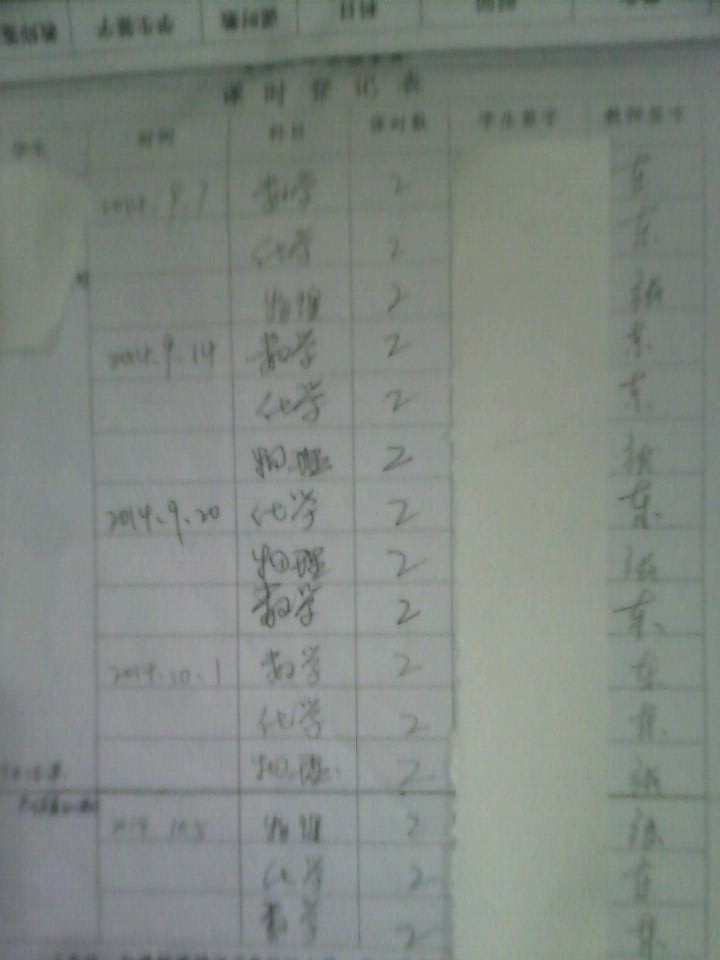 教师签 学生签字 课时数 科目 时间
课时登记表
学生 时间 科目 课时数 学生签字 教师签字
2014.9.7 数学 2 东
化学 2 东
物理 2 张
2014.9.14 数学 2 东
化学 2 东
物理 2 张
2014.9.20 化学 2 东
物理 2 张
数学 2 东
2014.10.1 数学 2 东
化学 2 东
物理 2 张
2014.10.5 物理 2 张
化学 2 东
数学 2 东